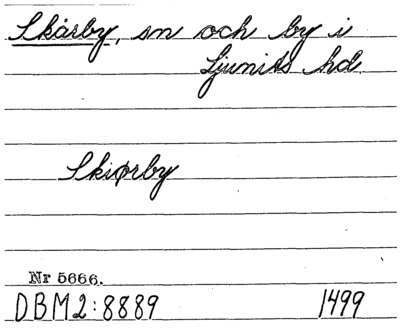 Skårby, sn och by i
Ljunits hd.
Skiørby
Nr 5666.
DBM2:8889 1499